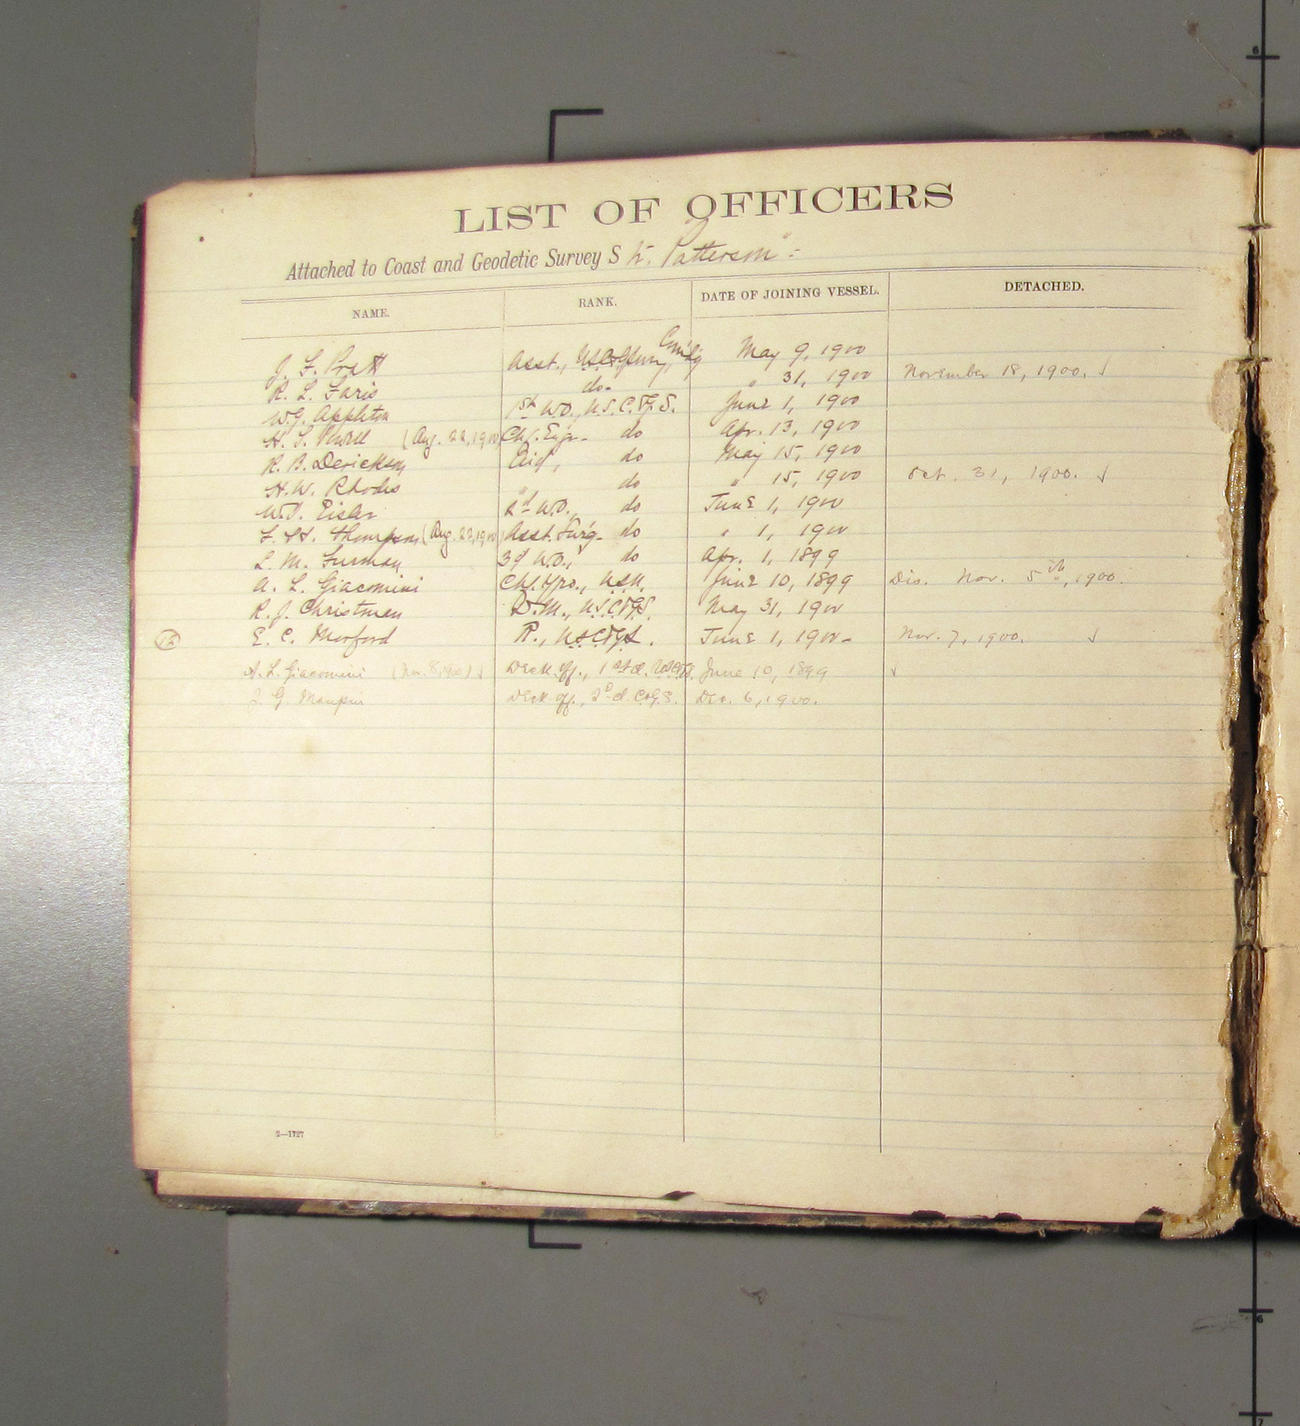 LIST OF OFFICERS
Attached to Coast and Geodetic Survey S Tr. "Patterson".
NAME. RANK. DATE OF JOINING VESSEL. DETACHED.
J. F. Pratt Asst., Com'd'g May 9, 1900
R. L. Faris do. " 31, 1900 November 18, 1900. ✓
W. G. Appleton 1st W.O., U.S.C.&G.S. June 1, 1900
(Aug. 22, 1900) do Apr. 13, 1900
R. B. Derickson Aid, do May 15, 1900
H. W. Rhodes " do " 15, 1900 Oct. 31, 1900. ✓
W. D. Eisler 2d W.O., do June 1, 1900
Thompson (Aug. 22, 1900) Asst. Surg. do " 1, 1900
L. M. Furman 3d W.O., do Apr. 1, 1899
A. L. Giacomini June 10, 1899 Dis. Nov. 5th, 1900.
R. J. Christman D.M., U.S.C.&G.S. May 31, 1900
12 E. C. Morford R., U.S.C.&G.S. June 1, 1900 Nov. 7, 1900. ✓
A. L. Giacomini (Nov. 8, 1900) ✓ Deck off., 1st cl. June 10, 1899 ✓
J. G. Maupin Deck off., 2d cl. C&G.S. Dec. 6, 1900.
2—1727
6
6
7